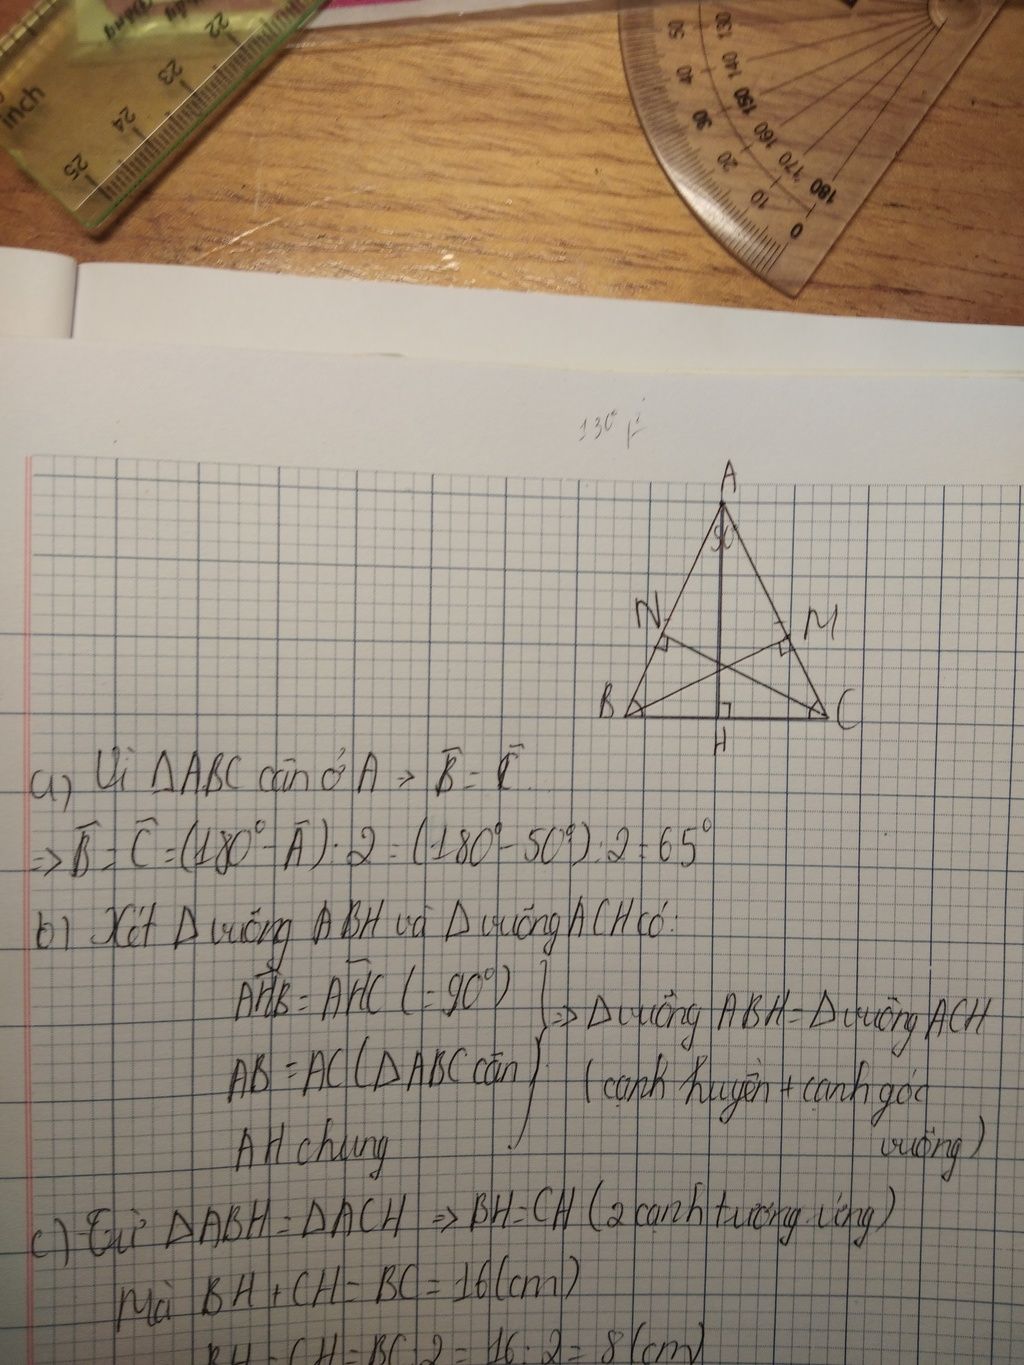 inch
22
23
24
25
50 130
40 140
30 150
20 160
10 170
0 180
130°
A
50°
N M
B C
H
a) Vì ΔABC cân ở A => B̄ = C̄
=> B̄ = C̄ = (180° - Ā) : 2 = (180° - 50°) : 2 = 65°
b) Xét Δ vuông ABH và Δ vuông ACH có:
AH̄B = AH̄C (= 90°)
AB = AC (ΔABC cân)
AH chung
=> Δ vuông ABH = Δ vuông ACH
(cạnh huyền + cạnh góc
vuông)
c) Từ ΔABH = ΔACH => BH = CH (2 cạnh tương ứng)
Mà BH + CH = BC = 16 (cm)
BH = CH = BC : 2 = 16 : 2 = 8 (cm)